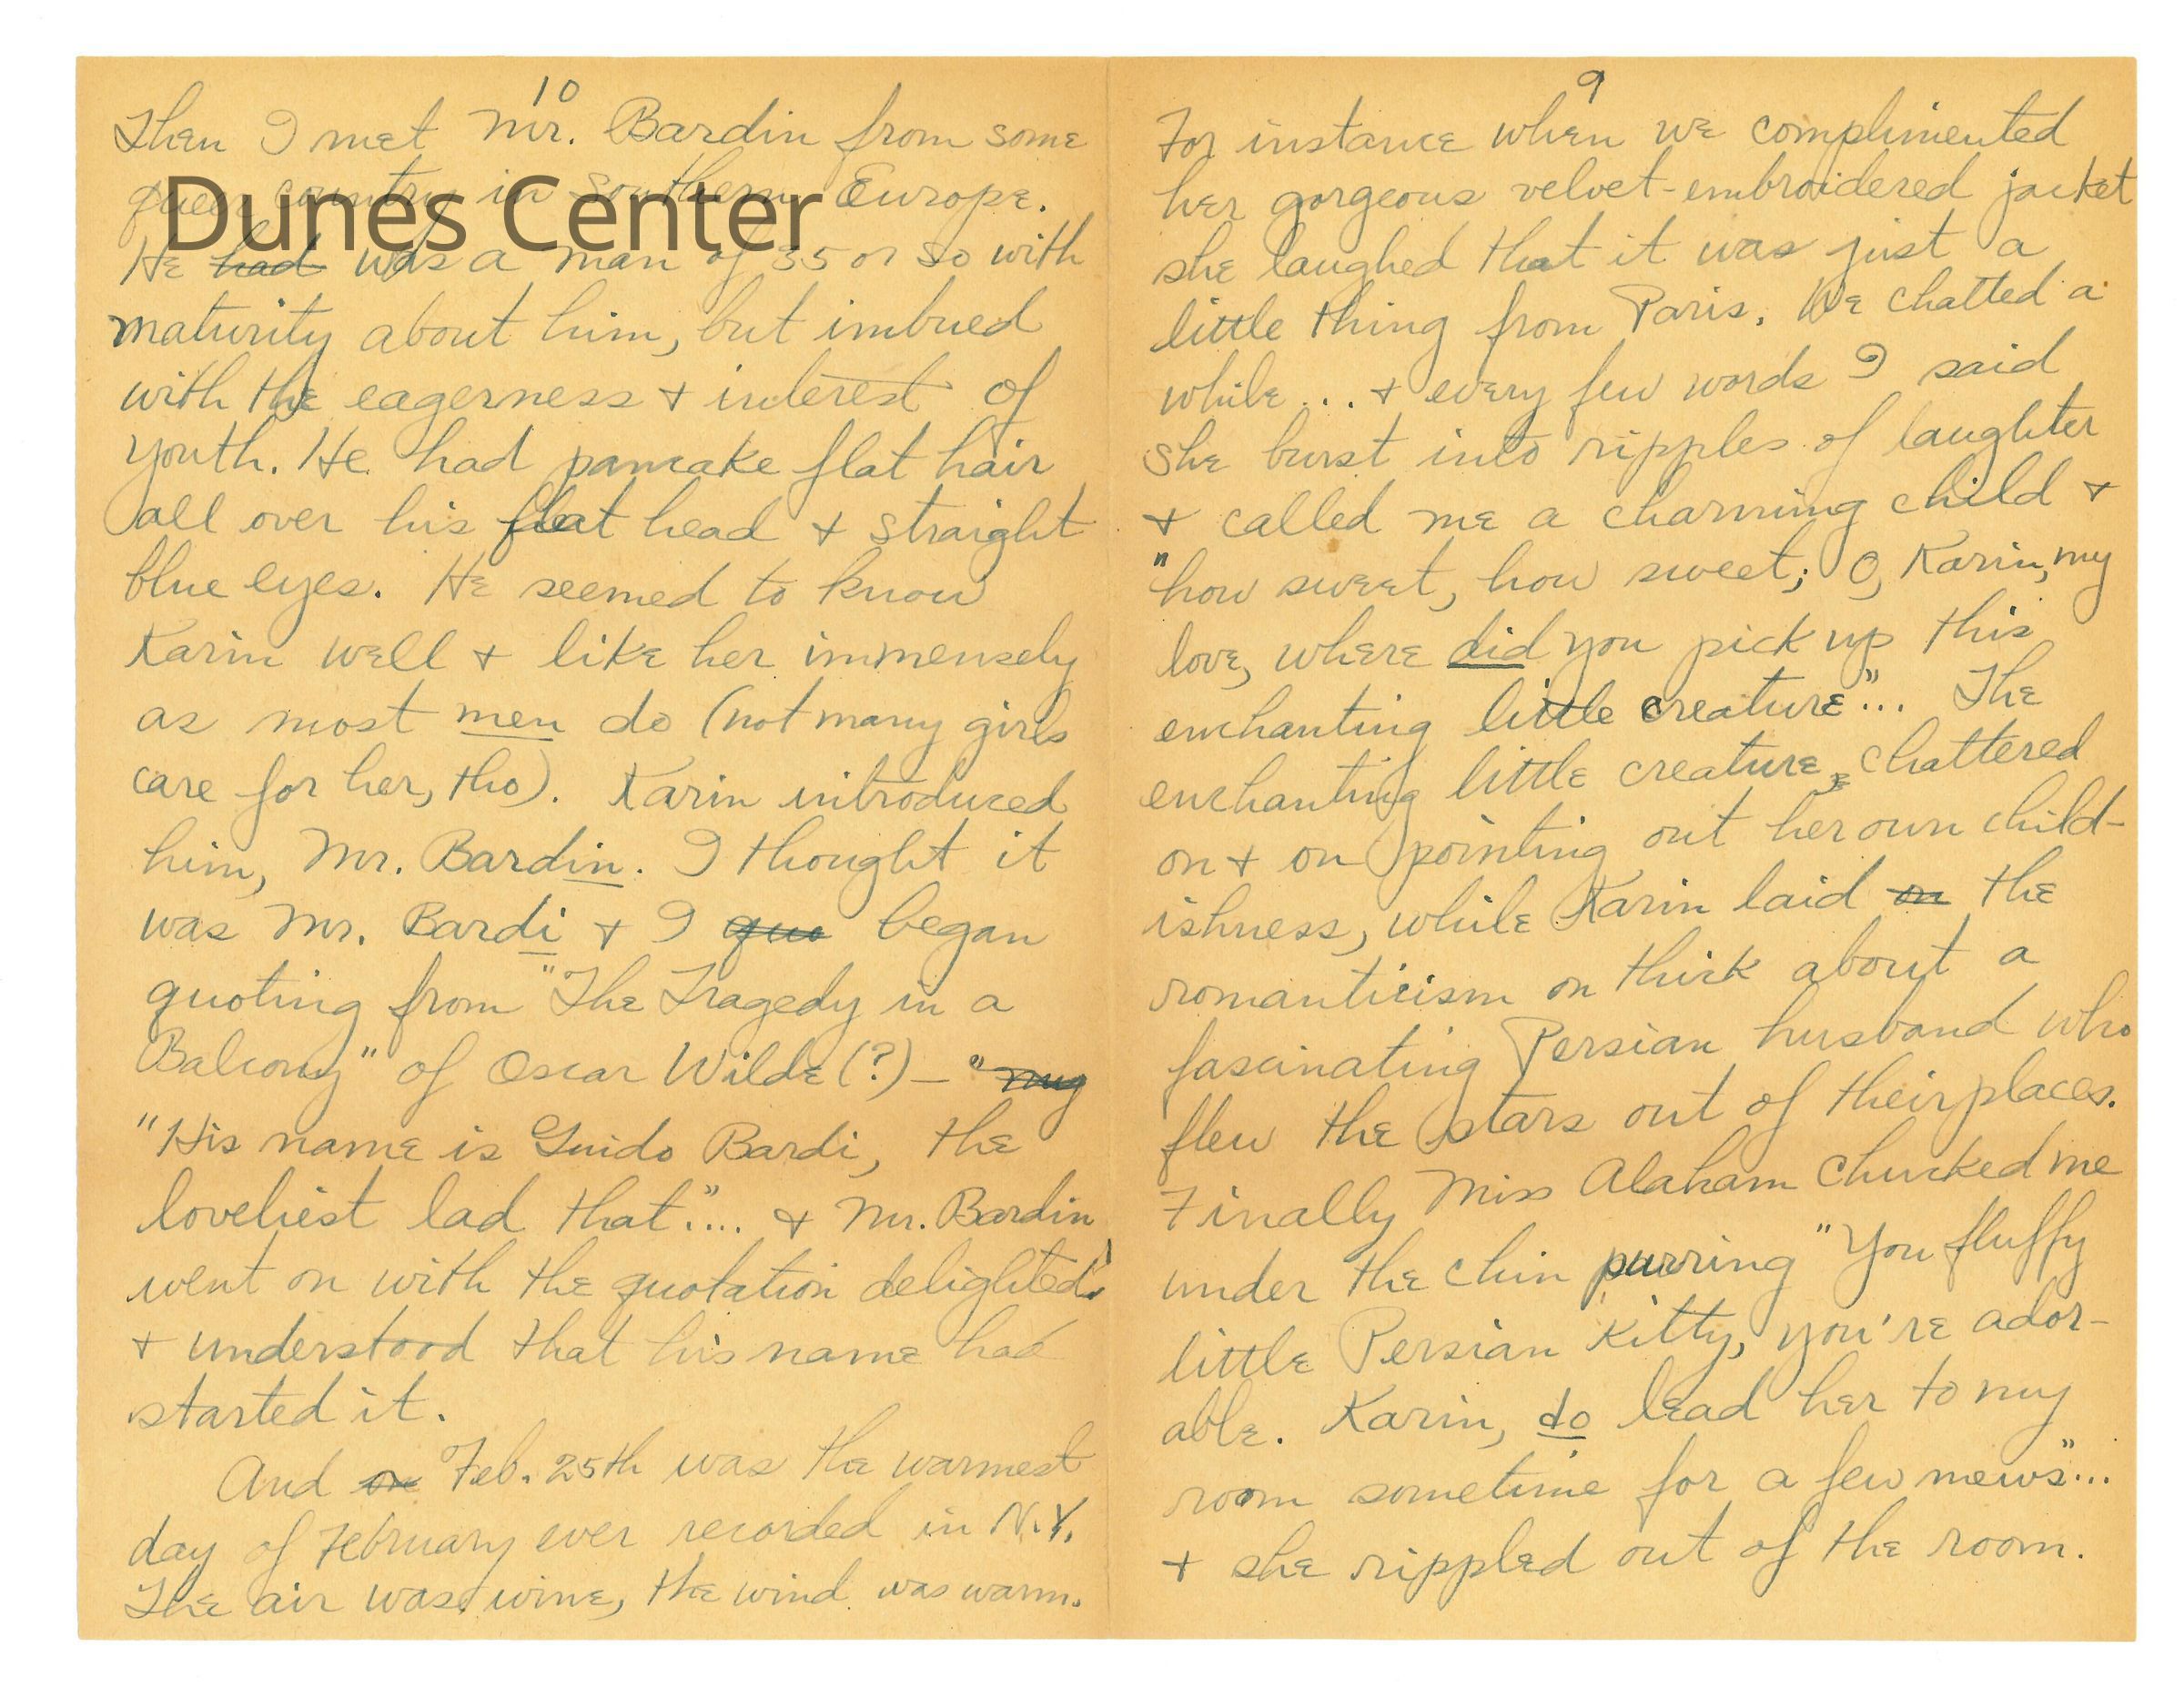 10
Then I met Mr. Bardin from some
queer country in Southern Europe.
Dunes Center
He had was a man of 35 or so with
maturity about him, but imbued
with the eagerness + interest of
youth. He had pancake flat hair
all over his flat head + straight
blue eyes. He seemed to know
Karin well + like her immensely
as most men do (not many girls
care for her, tho). Karin introduced
him, Mr. Bardin. I thought it
was Mr. Bardi + I quo began
quoting from "The Tragedy in a
Balcony" of Oscar Wilde (?) – "my
"His name is Guido Bardi, the
loveliest lad that".... + Mr. Bardin
went on with the quotation delighted
+ understood that his name had
started it.
And on Feb. 25th was the warmest
day of February ever recorded in N.Y.
The air was wine, the wind was warm.
9
For instance when we complimented
her gorgeous velvet-embroidered jacket
she laughed that it was just a
little thing from Paris. We chatted a
while... + every few words I said
she burst into ripples of laughter
+ called me a charming child +
"how sweet, how sweet; O, Karin, my
love, where did you pick up this
enchanting little creature"... The
enchanting little creature chattered
on + on pointing out her own child-
ishness, while Karin laid on the
romanticism on thick about a
fascinating Persian husband who
flew the stars out of their places.
Finally Miss Alaham chucked me
under the chin purring "You fluffy
little Persian Kitty, you're ador-
able. Karin, do lead her to my
room sometime for a few mews"...
+ she rippled out of the room.